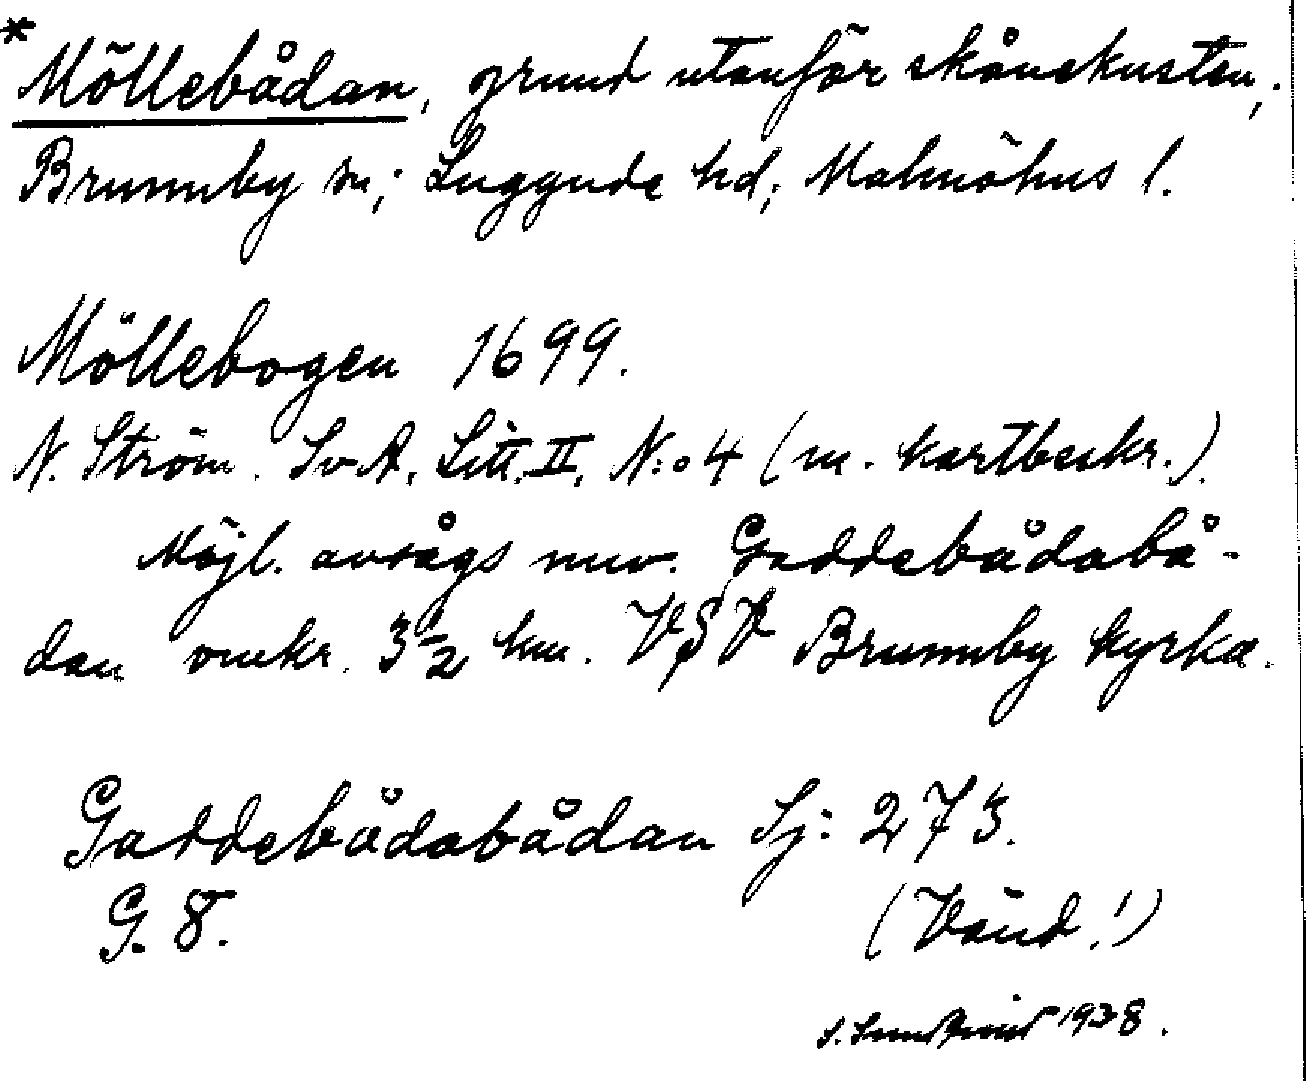 * Möllebådan, grund utanför skånekusten,;
Brunnby sn; Luggude hd; Malmöhus l.
Möllebogen 1699.
N. Ström. Sv A. Litt. II, N:o 4 (m. kartbeskr.).
Möjl. avsågs nuv. Gaddebådabå-
dan omkr. 3½ km. VSV Brunnby kyrka.
Gaddebådabådan Sj: 273.
G. 8.
(Vänd!)
1938.